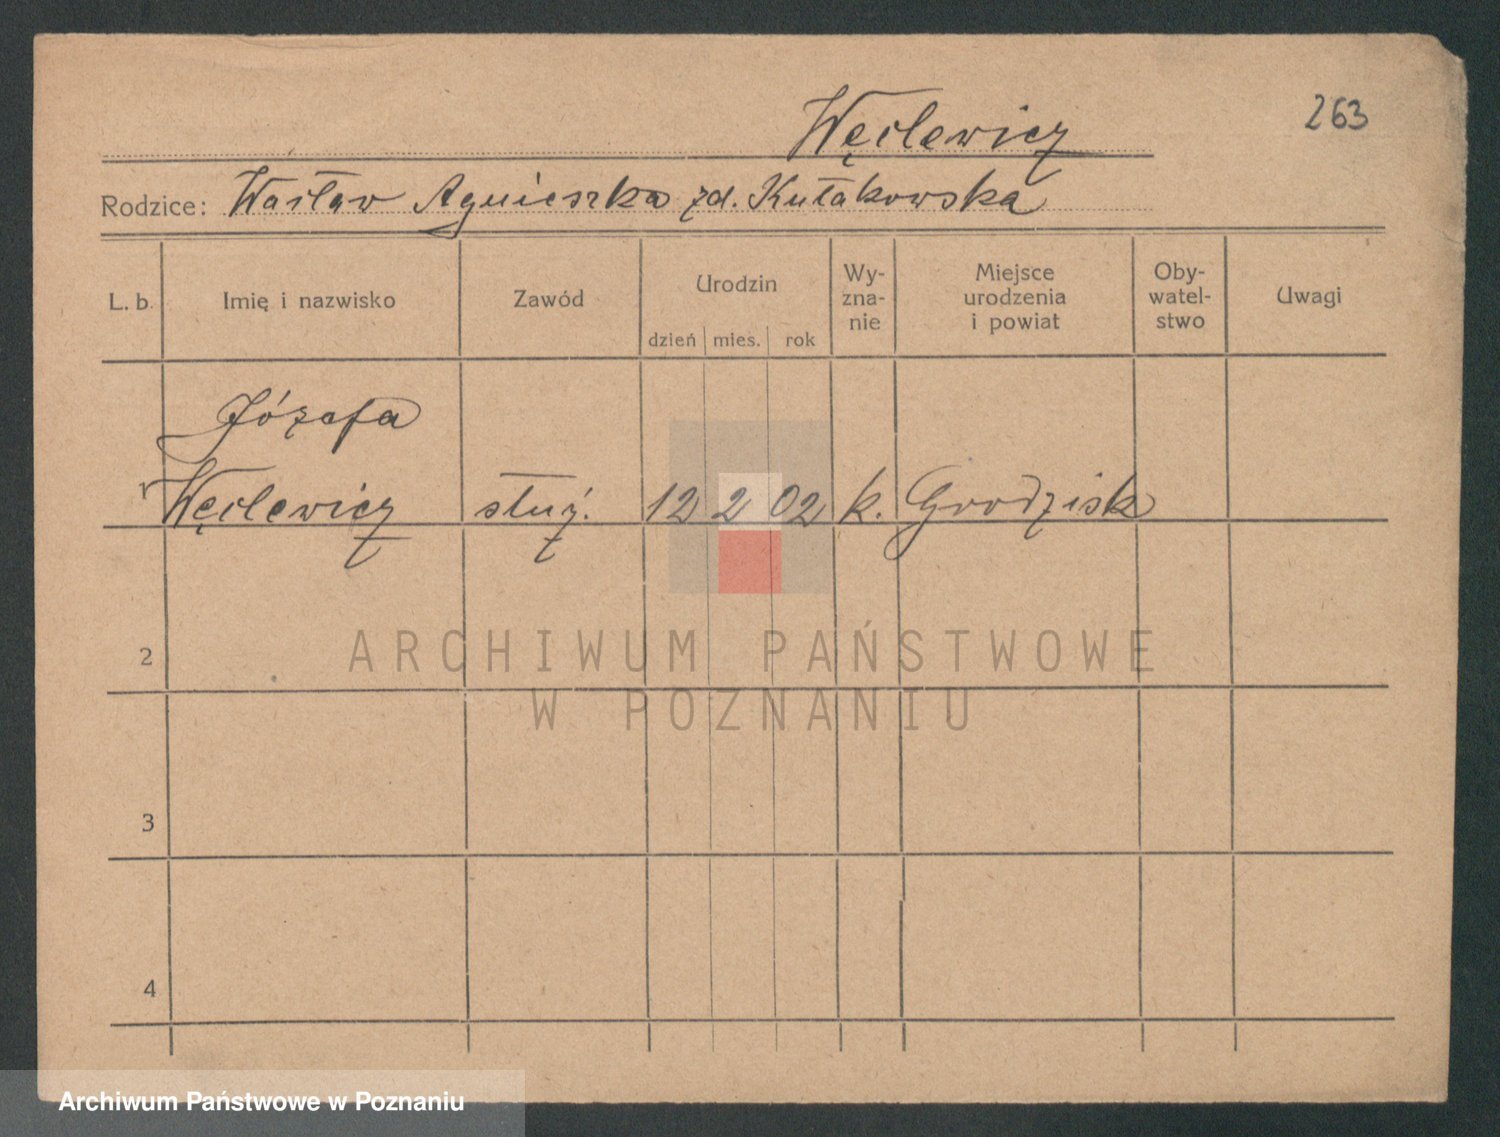 263
Węclewicz
Rodzice: Wacław Agnieszka zd. Kułakowska
L. b. Imię i nazwisko Zawód Urodzin Wy- Miejsce Oby- Uwagi
zna- urodzenia watel-
nie i powiat stwo
dzień mies. rok
Józefa
1 Węclewicz służ. 12 2 02 k. Grodzisk
2
ARCHIWUM PAŃSTWOWE
W POZNANIU
3
4
Archiwum Państwowe w Poznaniu